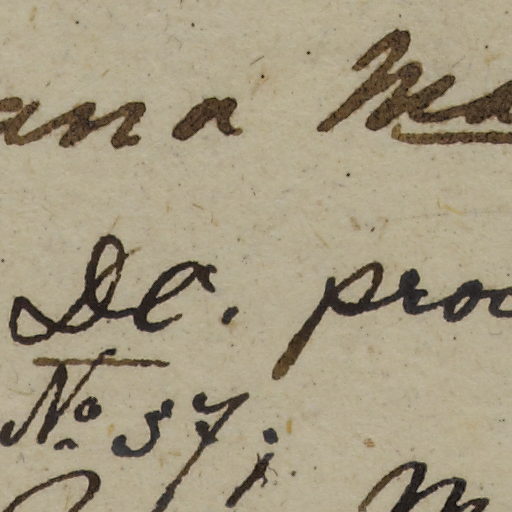 ana Ma
DC. proc
No. 57;